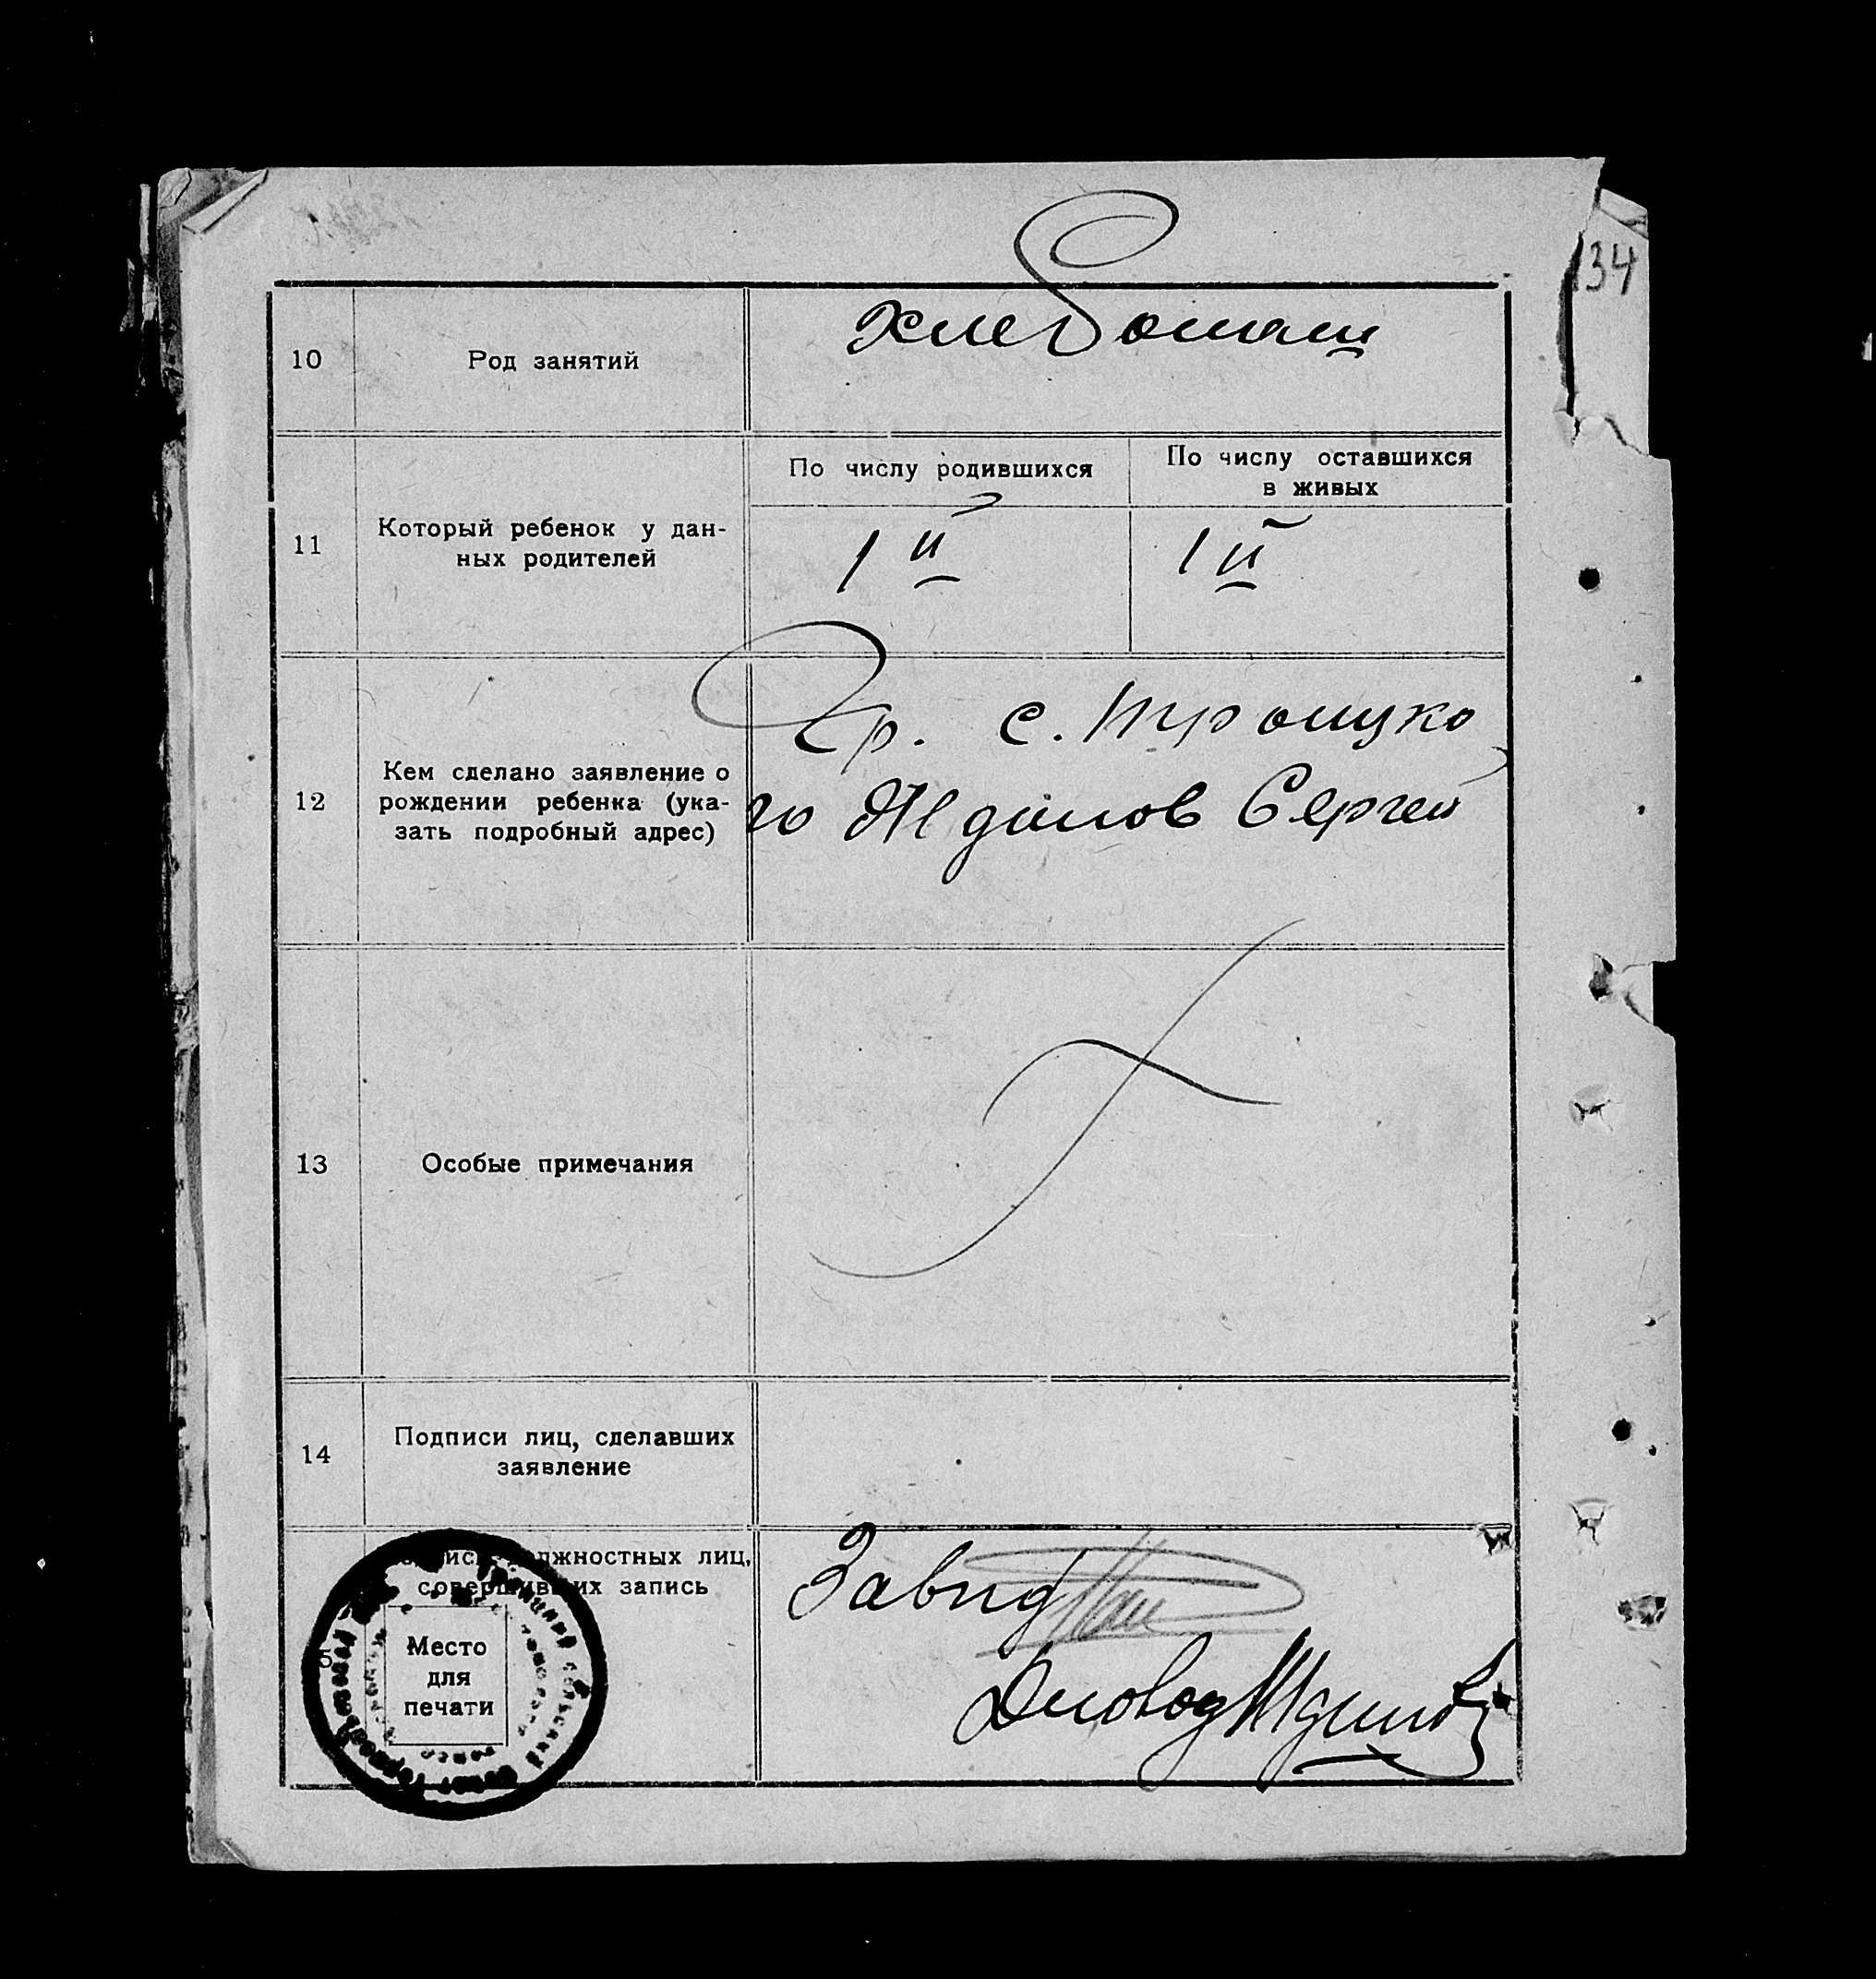 134
10 Род занятий
хлебопашц
11 Который ребенок у дан-
ных родителей
По числу родившихся
По числу оставшихся
в живых
1й
1й
12 Кем сделано заявление о
рождении ребенка (ука-
зать подробный адрес)
Гр. с. Троицко
го Жданов Сергей
13 Особые примечания
14 Подписи лиц, сделавших
заявление
должностных лиц,
совершивших запись
Место
для
печати
Завид
Деловод